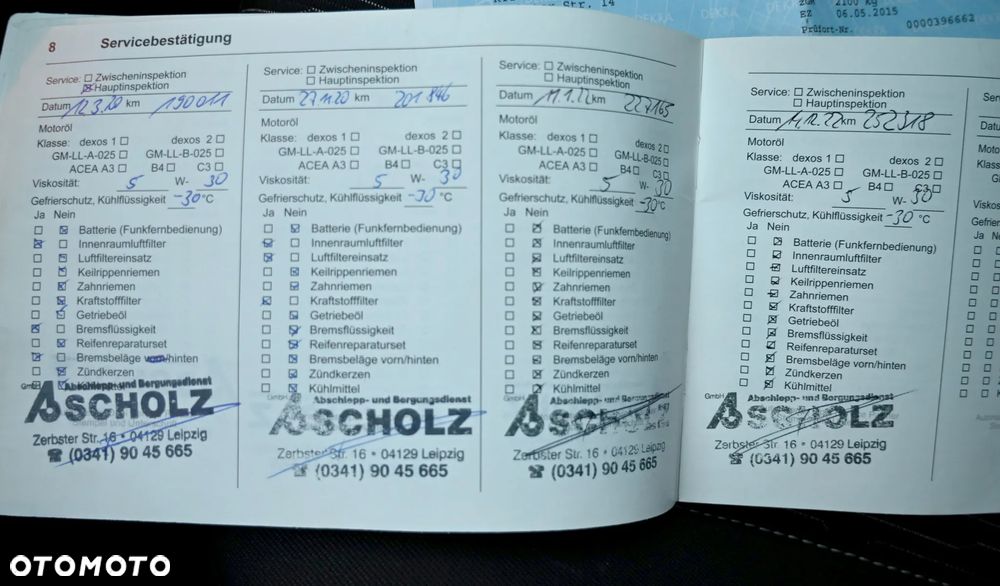 Str. 14
2100 kg
EZ 06.05.2015
Prüfort-Nr. 0000396662
DEKRA
8 Servicebestätigung
Service: Zwischeninspektion
Hauptinspektion
Datum 12.3.20 km 190011
Motoröl
Klasse: dexos 1 dexos 2
GM-LL-A-025 GM-LL-B-025
ACEA A3 B4 C3
Viskosität: 5 W- 30
Gefrierschutz, Kühlflüssigkeit -30 °C
Ja Nein
Batterie (Funkfernbedienung)
Innenraumluftfilter
Luftfiltereinsatz
Keilrippenriemen
Zahnriemen
Kraftstofffilter
Getriebeöl
Bremsflüssigkeit
Reifenreparaturset
Bremsbeläge vorn/hinten
Zündkerzen
GmbH Abschlepp- und Bergungsdienst
ASCHOLZ
Zerbster Str. 16 • 04129 Leipzig
☎ (0341) 90 45 665
Service: Zwischeninspektion
Hauptinspektion
Datum 27.11.20 km 201 846
Motoröl
Klasse: dexos 1 dexos 2
GM-LL-A-025 GM-LL-B-025
ACEA A3 B4 C3
Viskosität: 5 W- 30
Gefrierschutz, Kühlflüssigkeit -30 °C
Ja Nein
Batterie (Funkfernbedienung)
Innenraumluftfilter
Luftfiltereinsatz
Keilrippenriemen
Zahnriemen
Kraftstofffilter
Getriebeöl
Bremsflüssigkeit
Reifenreparaturset
Bremsbeläge vorn/hinten
Zündkerzen
Kühlmittel
GmbH Abschlepp- und Bergungsdienst
ASCHOLZ
Zerbster Str. 16 • 04129 Leipzig
☎ (0341) 90 45 665
Service: Zwischeninspektion
Hauptinspektion
Datum 11.1.22 km 227165
Motoröl
Klasse: dexos 1 dexos 2
GM-LL-A-025 GM-LL-B-025
ACEA A3 B4 C3
Viskosität: 5 W- 30
Gefrierschutz, Kühlflüssigkeit -30 °C
Ja Nein
Batterie (Funkfernbedienung)
Innenraumluftfilter
Luftfiltereinsatz
Keilrippenriemen
Zahnriemen
Kraftstofffilter
Getriebeöl
Bremsflüssigkeit
Reifenreparaturset
Bremsbeläge vorn/hinten
Zündkerzen
Kühlmittel
GmbH Abschlepp- und Bergungsdienst
ASCHOLZ
Zerbster Str. 16 • 04129 Leipzig
☎ (0341) 90 45 665
Service: Zwischeninspektion
Hauptinspektion
Datum 11.12.22 km 252318
Motoröl
Klasse: dexos 1 dexos 2
GM-LL-A-025 GM-LL-B-025
ACEA A3 B4 C3
Viskosität: 5 W- 30
Gefrierschutz, Kühlflüssigkeit -30 °C
Ja Nein
Batterie (Funkfernbedienung)
Innenraumluftfilter
Luftfiltereinsatz
Keilrippenriemen
Zahnriemen
Kraftstofffilter
Getriebeöl
Bremsflüssigkeit
Reifenreparaturset
Bremsbeläge vorn/hinten
Zündkerzen
Kühlmittel
GmbH Abschlepp- und Bergungsdienst
ASCHOLZ
Zerbster Str. 16 • 04129 Leipzig
☎ (0341) 90 45 665
OTOMOTO